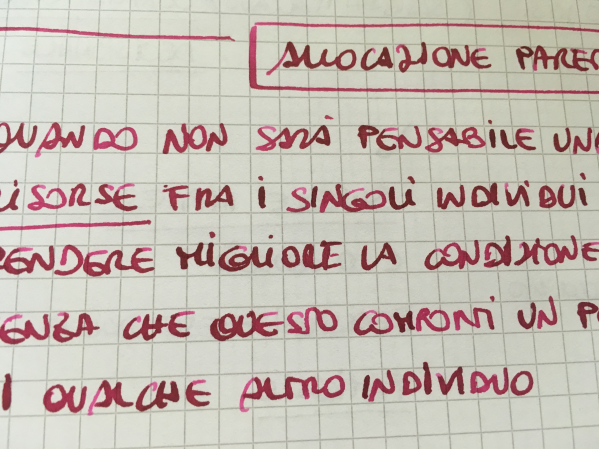 ALLOCAZIONE PARE
QUANDO NON SARÀ PENSABILE UN
RISORSE FRA I SINGOLI INDIVIDUI
RENDERE MIGLIORE LA CONDIZIONE
ENZA CHE QUESTO COMPORTI UN P
I QUALCHE ALTRO INDIVIDUO